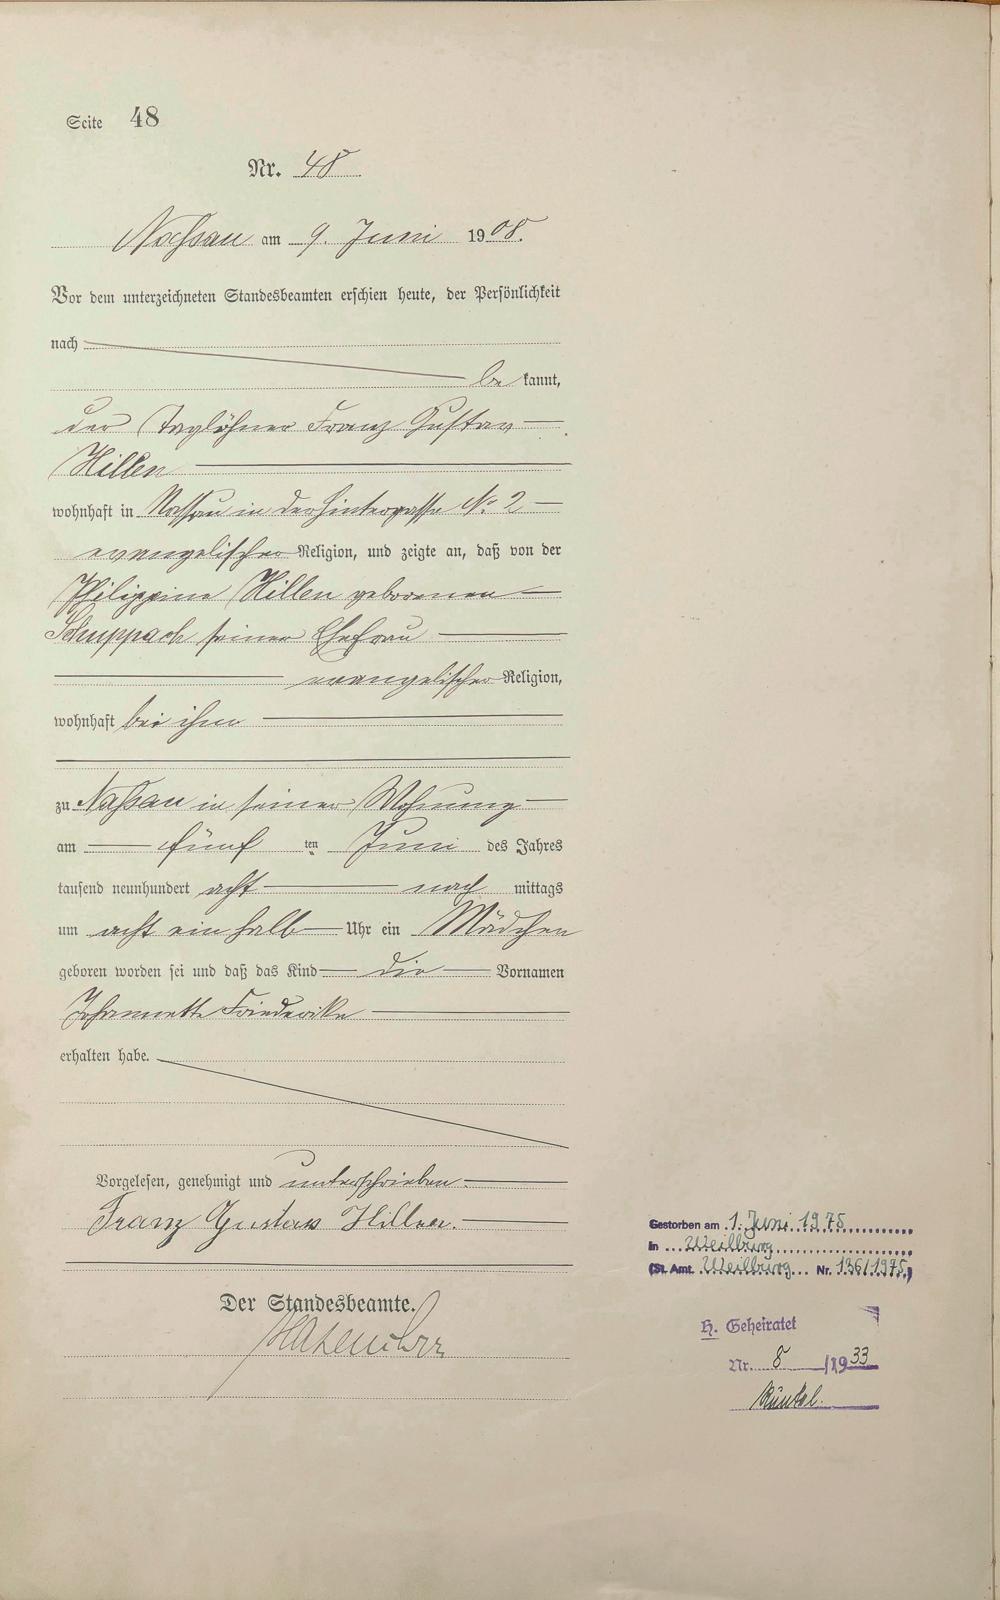 Seite 48
Nr. 48
Nassau am 9. Juni 1908.
Vor dem unterzeichneten Standesbeamten erschien heute, der Persönlichkeit
nach
be kannt,
der Taglöhner Franz Gustav
Hillen
wohnhaft in Nassau in der Hintergasse No. 2
evangelischer Religion, und zeigte an, daß von der
Philippine Hillen geborenen
Schuppach seiner Ehefrau
evangelischer Religion,
wohnhaft bei ihm
zu Nassau in seiner Wohnung
am fünf ten Juni des Jahres
tausend neunhundert acht nach mittags
um acht ein halb Uhr ein Mädchen
geboren worden sei und daß das Kind die Vornamen
Johannette Friederike
erhalten habe.
Vorgelesen, genehmigt und unterschrieben.
Franz Gustav Hillen.
Der Standesbeamte.
Gestorben am 1. Juni 1975
in Weilburg
(St. Amt. Weilburg Nr. 136/1975)
H. Geheiratet
Nr. 8 /1933
Runkel.